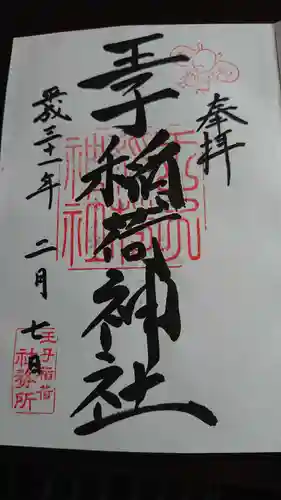 奉拝
王子稲荷神社
平成三十一年二月七日
王子稲荷
社務所